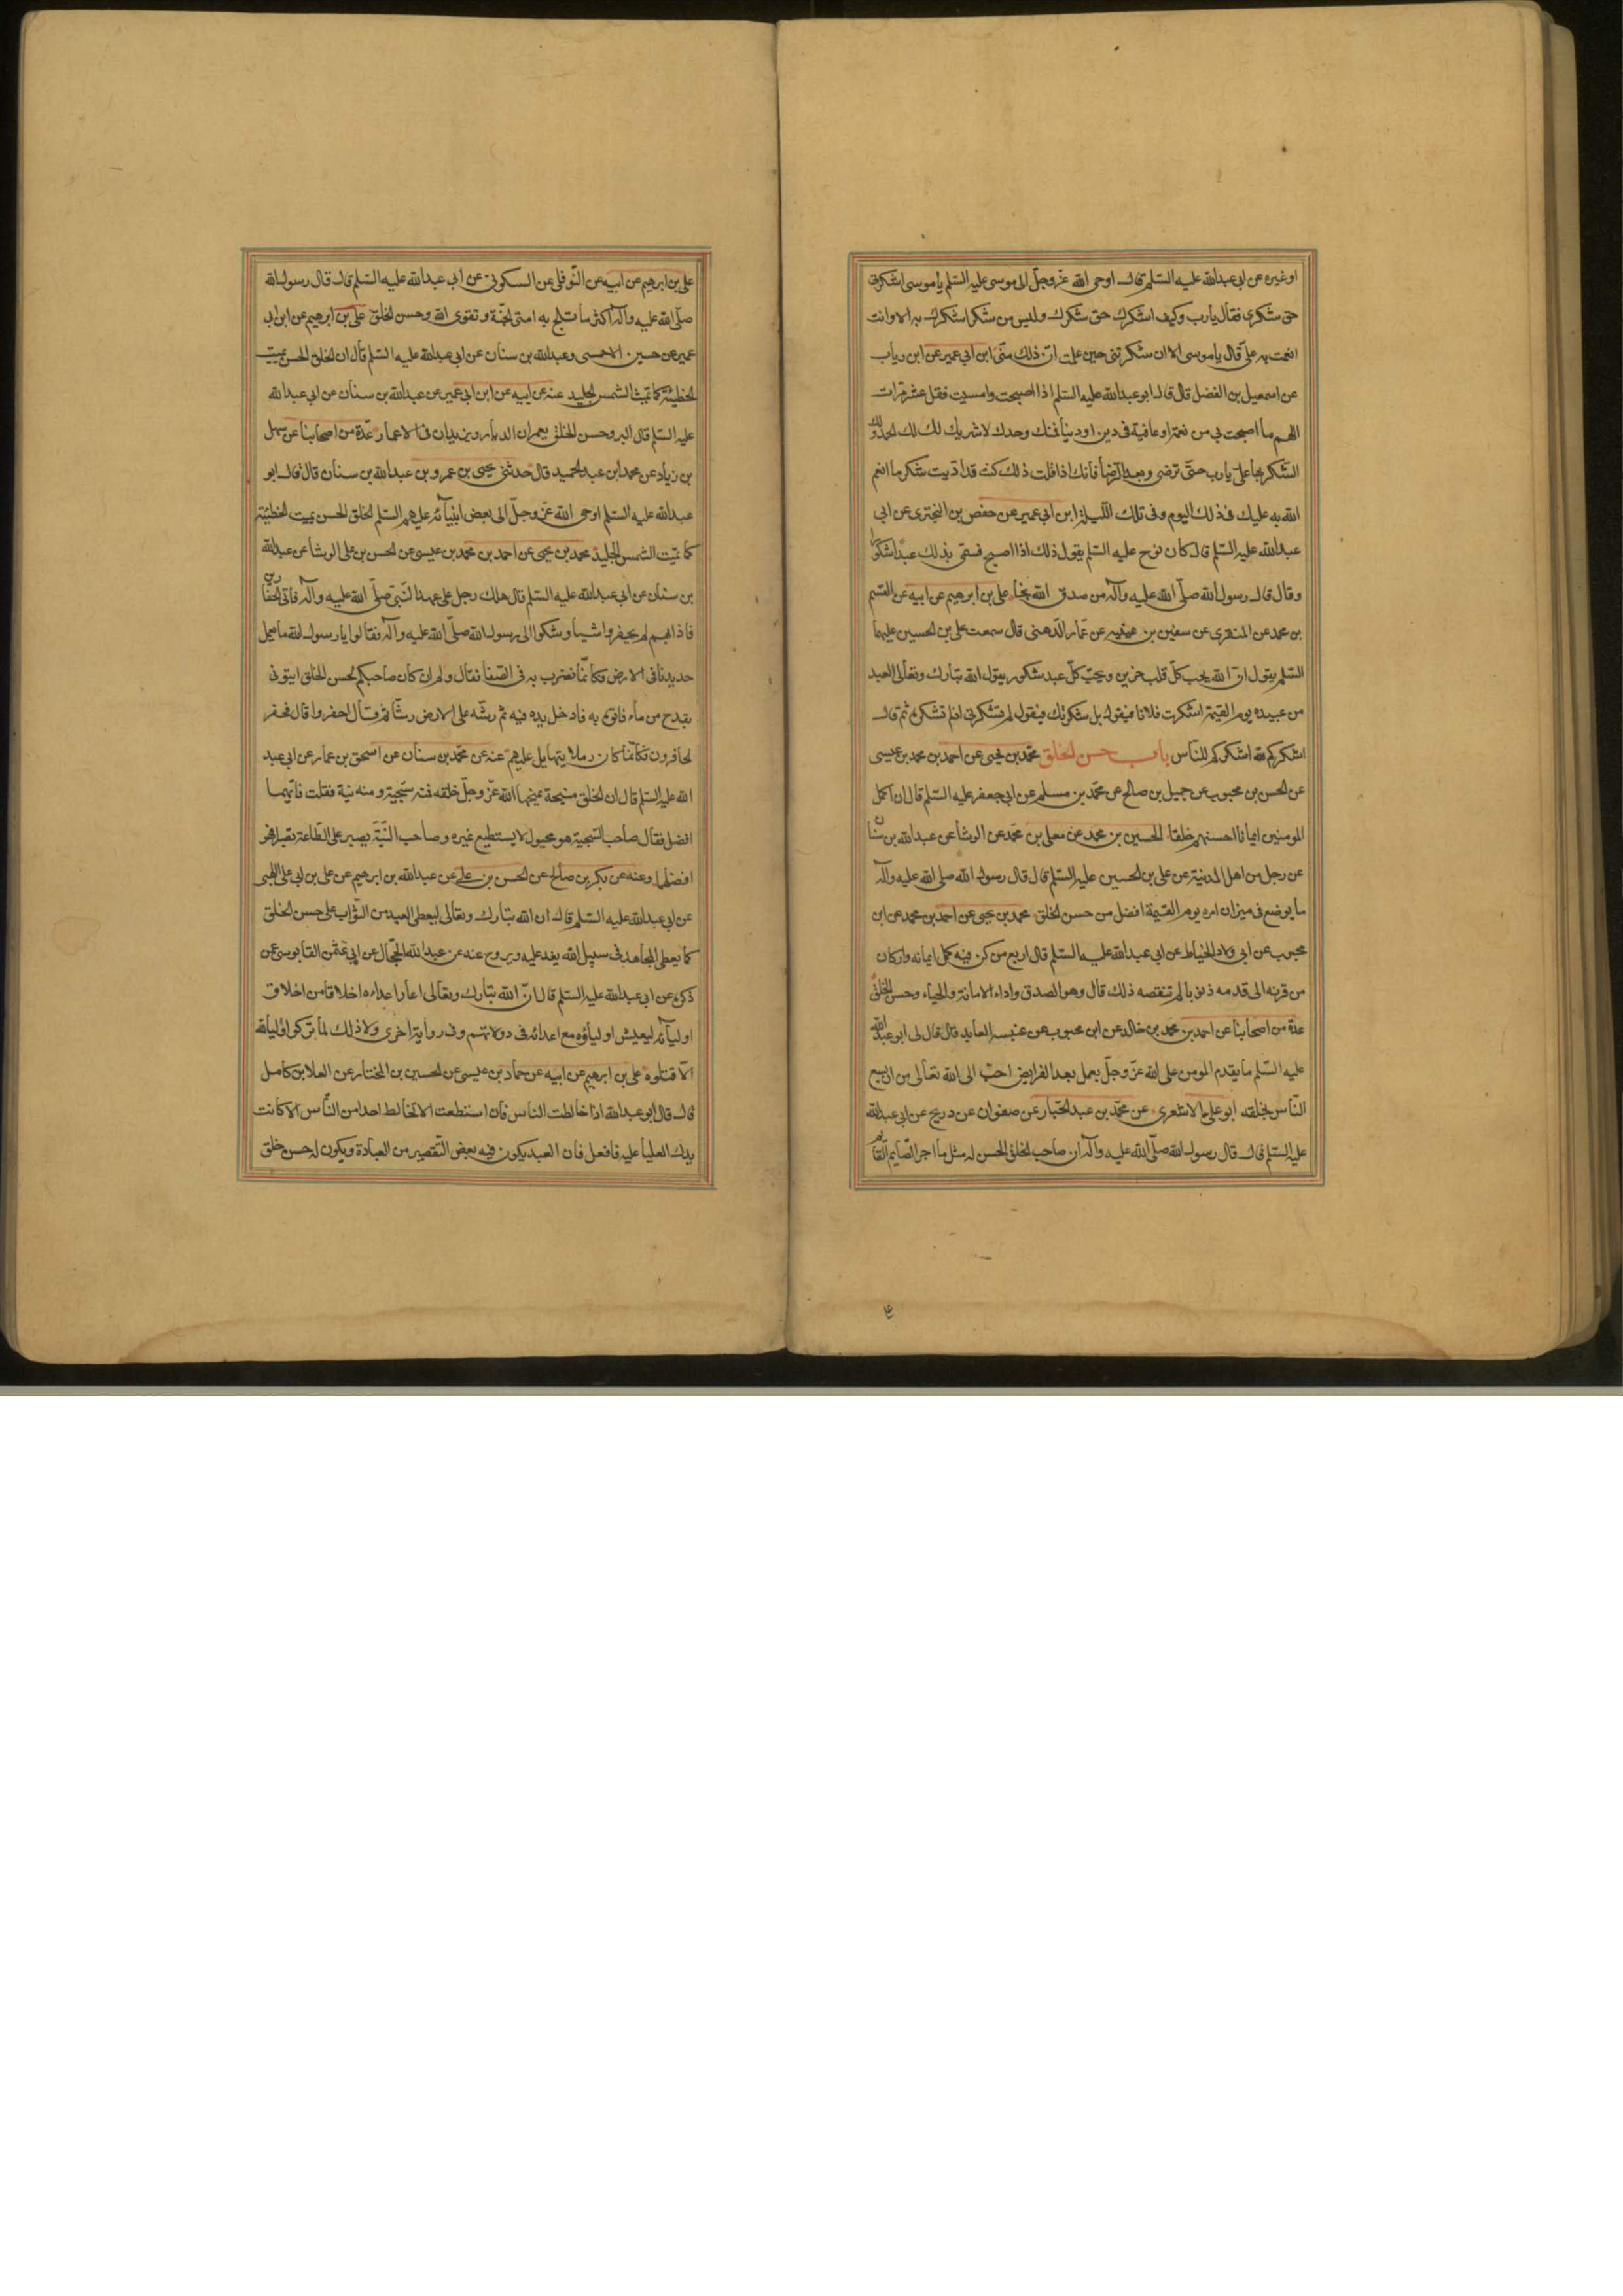 او غيره عن ابى عبدالله عليه السّلم قال اوحى الله عزّ وجلّ الى موسى عليه السّلم يا موسى اشكرنى
حق شكرى فقال يا رب وكيف اشكرك حق شكرك وليس من شكر اشكرك به الا وانت
انعمت به علىّ قال يا موسى الان شكرتنى حين علمت انّ ذلك منّى ابن ابى عمير عن ابن رياب
عن اسمعيل بن الفضل قال قال ابو عبدالله عليه السّلم اذا اصبحت وامسيت فقل عشر مرّات
اللهم ما اصبحت بى من نعمة او عافية فى دين او دنيا فمنك وحدك لا شريك لك لك الحمد ولك
الشّكر بها علىّ يا رب حتّى ترضى وبعد الرّضا فانك اذا قلت ذلك كنت قد ادّيت شكر ما انعم
الله به عليك فى ذلك اليوم وفى تلك اللّيلة ابن ابى عمير عن حفص بن البخترى عن ابى
عبدالله عليه السّلم قال كان نوح عليه السّلم يقول ذلك اذا اصبح فسمّى بذلك عبدًا شكورا
وقال قال رسول الله صلّى الله عليه وآله من صدق الله نجا على بن ابرهيم عن ابيه عن القسم
بن محمد عن المنقرى عن سفين بن عيينه عن عمّار الدّهنى قال سمعت على بن الحسين عليهما
السّلم يقول انّ الله يحب كلّ قلب حزين ويحبّ كلّ عبد شكور يقول الله تبارك وتعالى لعبد
من عبيده يوم القيمة اشكرت فلانا فيقول بل شكرتك فيقول لم تشكرنى اذ لم تشكره ثم قال
اشكركم لله اشكركم للنّاس باب حسن الخلق محمّد بن يحيى عن احمد بن محمد بن عيسى
عن الحسن بن محبوب عن جميل بن صالح عن محمّد بن مسلم عن ابى جعفر عليه السّلم قال ان اكمل
المومنين ايمانا احسنهم خلقا الحسين بن محمد عن معلى بن محمد عن الوشا عن عبدالله بن سنان
عن رجل من اهل المدينة عن على بن الحسين عليه السّلم قال قال رسول الله صلى الله عليه وآله
ما يوضع فى ميزان امره يوم القيمة افضل من حسن الخلق محمد بن يحيى عن احمد بن محمد عن ابن
محبوب عن ابى ولاد الحنّاط عن ابى عبدالله عليه السّلم قال اربع من كن فيه كمل ايمانه وان كان
من قرنه الى قدمه ذنوبا لم تنقصه ذلك قال وهو الصدق واداء الامانة والحياء وحسن الخلق
عدّة من اصحابنا عن احمد بن محمد بن خالد عن ابن محبوب عن عنبسه العابد قال قال لى ابو عبدالله
عليه السّلم ما يقدم المومن على الله عزّ وجلّ بعمل بعد الفرايض احبّ الى الله تعالى من ان يسع
النّاس بخلقه ابو على الاشعرى عن محمّد بن عبد الجبّار عن صفوان عن ذريح عن ابى عبدالله
عليه السّلم قال قال رسول الله صلّى الله عليه وآله ان صاحب الخلق الحسن له مثل ما اجر الصّايم القايم
على بن ابرهيم عن ابيه عن النّوفلى عن السكونى عن ابى عبدالله عليه السّلم قال قال رسول الله
صلّى الله عليه وآله اكثر ما تلج به امتى الجنّة وتقوى الله وحسن الخلق على بن ابرهيم عن ابن ابى
عمير عن حسين الاحمسى وعبدالله بن سنان عن ابى عبدالله عليه السّلم قال ان الخلق الحسن يميت
الخطيئة كما تميث الشمس الجليد عنه عن ابيه عن ابن ابى عمير عن عبدالله بن سنان عن ابى عبدالله
عليه السّلم قال البر وحسن الخلق يعمران الديار ويزيدان فى الاعمار عدّة من اصحابنا عن سهل
بن زياد عن محمد ابن عبد الحميد قال حدثنى يحيى بن عمرو بن عبدالله بن سنان قال قال ابو
عبدالله عليه السّلم اوحى الله عزّ وجلّ الى بعض انبيآئه عليهم السّلم الخلق الحسن يميت الخطيئة
كما تميت الشمس الجليد محمد بن يحيى عن احمد بن محمد بن عيسى عن الحسن بن على الوشا عن عبدالله
بن سنان عن ابى عبدالله عليه السّلم قال هلك رجل على عهد النّبى صلّى الله عليه وآله فاتى الحفّارين
فاذا بهم لم يحفروا شيا وشكوا الى رسول الله صلّى الله عليه وآله فقالوا يا رسول الله ما يعمل
حديدنا فى الارض فكانّما نضرب به فى الصّفا فقال ولم ان كان صاحبكم لحسن الخلق ايتونى
بقدح من مآء فاتوه به فادخل يده فيه ثم رشّه على الارض رشّا ثم قال احفروا قال فحفر
الحافرون فكانّما كان رملا يتهايل عليهم عنه عن محمّد بن سنان عن اسحق بن عمار عن ابى عبد
الله عليه السّلم قال ان الخلق منيحة يمنحها الله عزّ وجلّ خلقه فمنه سجيّة ومنه نية فقلت فايّتهما
افضل فقال صاحب السّجية هو مجبول لا يستطيع غيره وصاحب النّيّة يصبر على الطّاعة تصبرا فهو
افضلهما وعنه عن بكر بن صالح عن الحسن بن على عن عبدالله بن ابرهيم عن على بن ابى على اللهبى
عن ابى عبدالله عليه السّلم قال ان الله تبارك وتعالى ليعطى العبد من الثّواب على حسن الخلق
كما يعطى المجاهد فى سبيل الله يغد عليه ويروح عنه عن عبدالله الحجّال عن ابى عثمن القابوسى عن
ذكره عن ابى عبدالله عليه السّلم قال انّ الله تبارك وتعالى اعار اعداءه اخلاقا من اخلاق
اوليآئه ليعيش اولياؤه مع اعدائه فى دولاتهم وفى رواية اخرى ولا ذلك لما تركوا وليا لله
الّا قتلوه على بن ابرهيم عن ابيه عن حماد بن عيسى عن الحسين بن المختار عن العلا بن كامل
قال قال ابو عبدالله اذا خالطت الناس فان استطعت الا تخالط احدا من النّاس الا كانت
يدك العليا عليه فافعل فان العبد يكون فيه بعض التّقصير من العبادة ويكون له حسن خلق